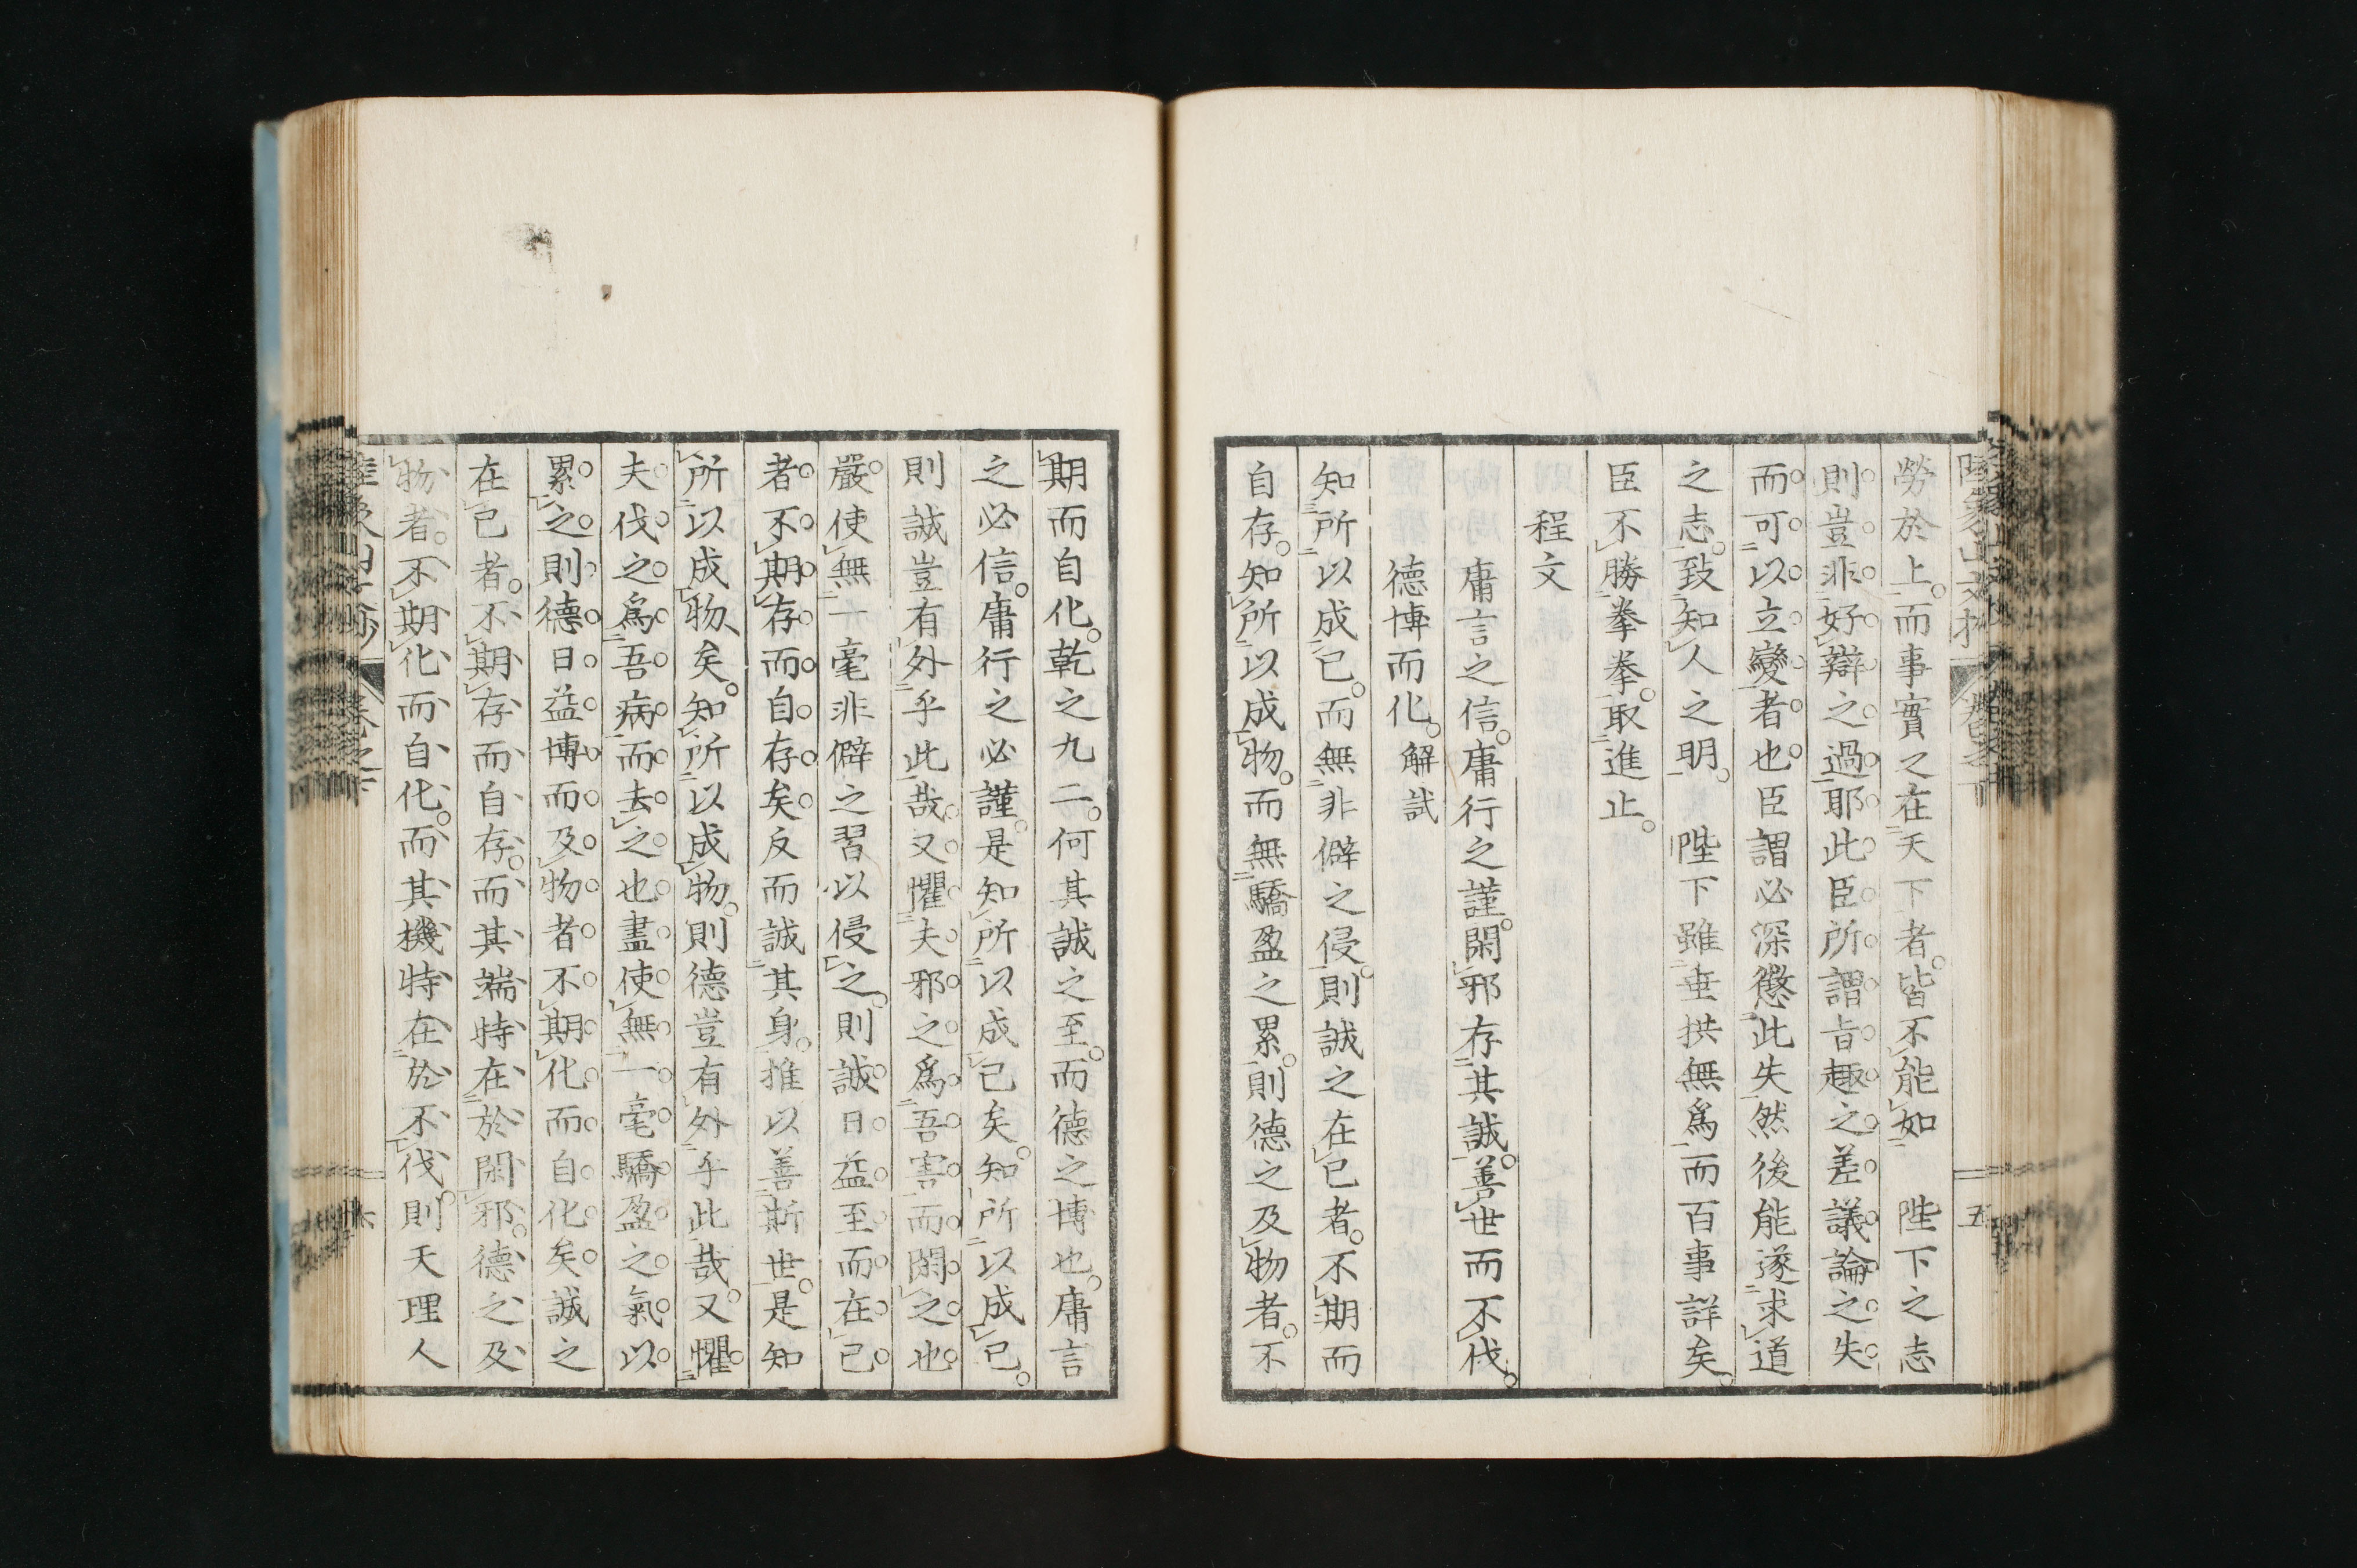 勞於上。而事實之在天下者。皆不能如　陛下之志
則豈非好辯之過耶此臣所謂旨趣之差議論之失
而可以立變者也臣謂必深懲此失然後能遂求道
之志。致知人之明。　陛下雖垂拱無爲而百事詳矣。
臣不勝拳拳。取進止。
程文
庸言之信。庸行之謹。閑邪存其誠。善世而不伐。
德博而化。解試
知所以成己。而無非僻之侵。則誠之在己者。不期而
自存。知所以成物。而無驕盈之累。則德之及物者。不
期而自化。乾之九二。何其誠之至。而德之博也。庸言
之必信。庸行之必謹。是知所以成己矣。知所以成己。
則誠豈有外乎此哉又懼夫邪之爲吾害而閑之也
嚴使無一毫非僻之習以侵之。則誠日益至而在己
者不期存而自存矣反而誠其身。推以善斯世。是知
所以成物矣。知所以成物。則德豈有外乎此哉又懼
夫伐之爲吾病而去之也盡使無一毫驕盈之氣以
累之則德日益博而及物者不期化而自化矣誠之
在己者。不期存而自存。而其端特在於閑邪。德之及
物者。不期化而自化。而其機特在於不伐。則天理人